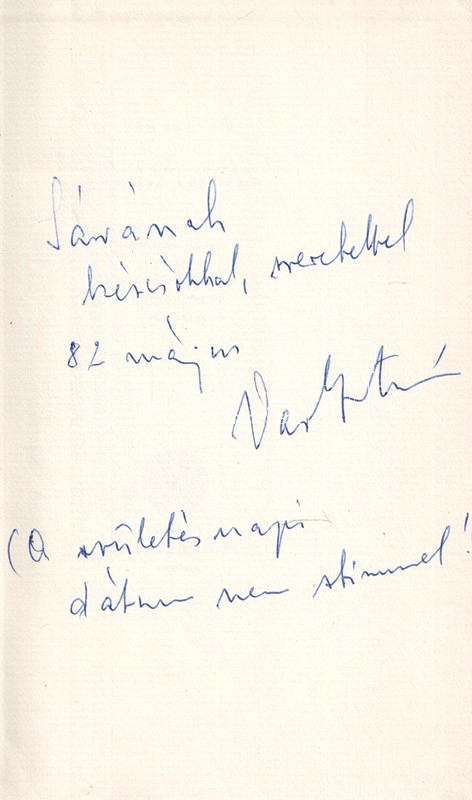 Sárának
kézcsókkal, szeretettel
82 május
Vas István
(A születésnapi
dátum nem stimmel!